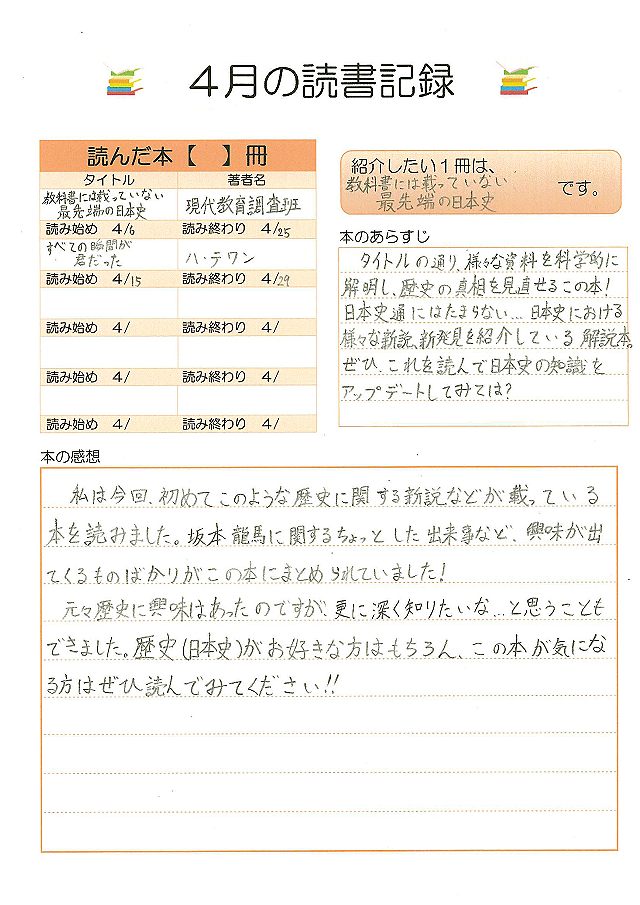 4月の読書記録
読んだ本【 】冊
タイトル 著者名
教科書には載っていない
最先端の日本史
現代教育調査班
読み始め 4/6 読み終わり 4/25
すべての瞬間が
君だった
ハ・テワン
読み始め 4/15 読み終わり 4/29
読み始め 4/ 読み終わり 4/
読み始め 4/ 読み終わり 4/
読み始め 4/ 読み終わり 4/
紹介したい1冊は、
教科書には載っていない
最先端の日本史
です。
本のあらすじ
タイトルの通り、様々な資料を科学的に
解明し、歴史の真相を見直せるこの本!
日本史通にはたまらない…日本史における
様々な新説、新発見を紹介している解説本。
ぜひ、これを読んで日本史の知識を
アップデートしてみては?
本の感想
私は今回、初めてこのような歴史に関する新説などが載っている
本を読みました。坂本龍馬に関するちょっとした出来事など、興味が出
てくるものばかりがこの本にまとめられていました!
元々歴史に興味はあったのですが、更に深く知りたいな…と思うことも
できました。歴史(日本史)がお好きな方はもちろん、この本が気にな
る方はぜひ読んでみてください!!